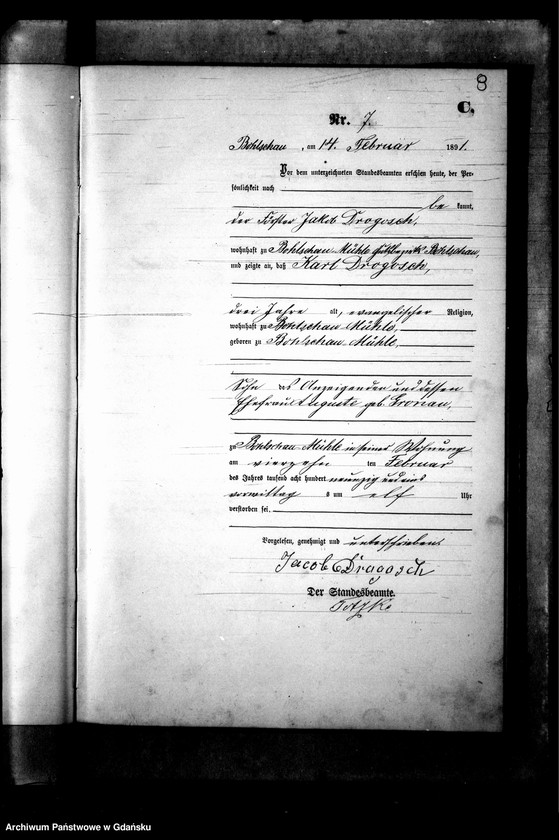 8
C.
Nr. 7.
Bohlschau, am 14. Februar 1891.
Vor dem unterzeichneten Standesbeamten erschien heute, der Per-
sönlichkeit nach
be kannt,
der Förster Jakob Drogosch,
wohnhaft zu Bohlschau Mühle Gutsbezirk Bohlschau,
und zeigte an, daß Karl Drogosch,
drei Jahre alt, evangelischer Religion,
wohnhaft zu Bohlschau Mühle,
geboren zu Bohlschau Mühle,
Sohn des Anzeigenden und dessen
Ehefrau Auguste geb. Gronau,
zu Bohlschau Mühle in seiner Wohnung
am vierzehn ten Februar
des Jahres tausend acht hundert neunzig und eins
vormittag s um elf Uhr
verstorben sei.
Vorgelesen, genehmigt und unterschrieben.
Jacob Drogosch
Der Standesbeamte.
Archiwum Państwowe w Gdańsku